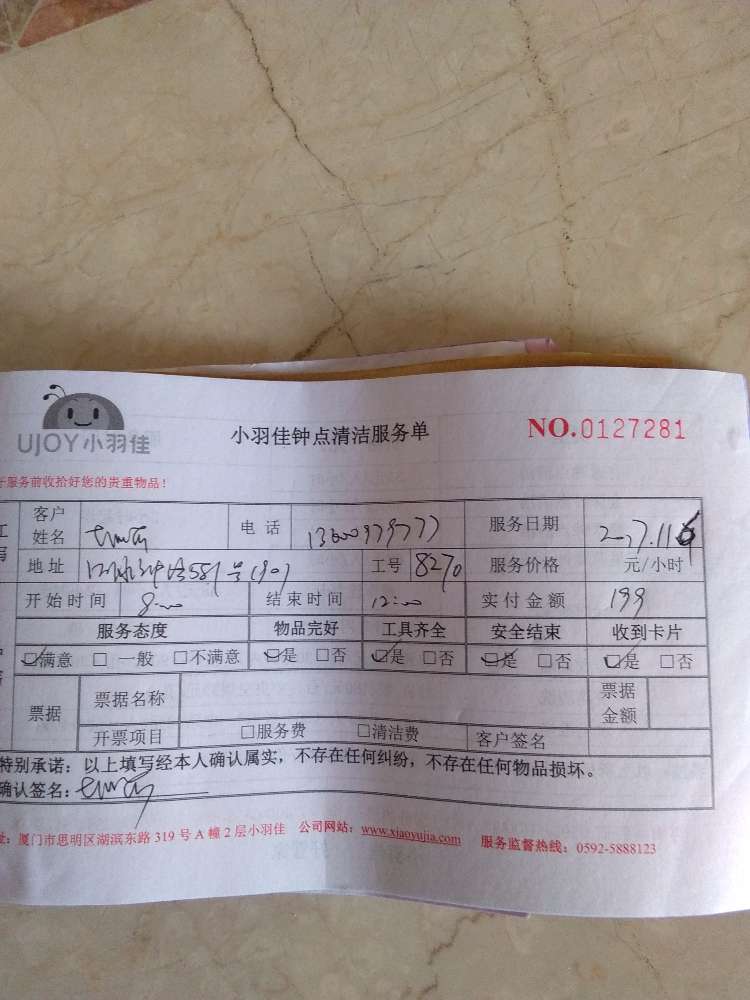 UJOY小羽佳
小羽佳钟点清洁服务单
NO.0127281
服务前收拾好您的贵重物品！
客户姓名 电话 服务日期
地址 581号 工号 8270 服务价格 元/小时
开始时间 8:00 结束时间 12:00 实付金额 199
服务态度 物品完好 工具齐全 安全结束 收到卡片
☑满意 □一般 □不满意 ☑是 □否 ☑是 □否 ☑是 □否 ☑是 □否
票据 票据名称 票据金额
开票项目 □服务费 □清洁费 客户签名
特别承诺：以上填写经本人确认属实，不存在任何纠纷，不存在任何物品损坏。
确认签名：
址：厦门市思明区湖滨东路319号A幢2层小羽佳 公司网站：www.xiaoyujia.com 服务监督热线：0592-5888123